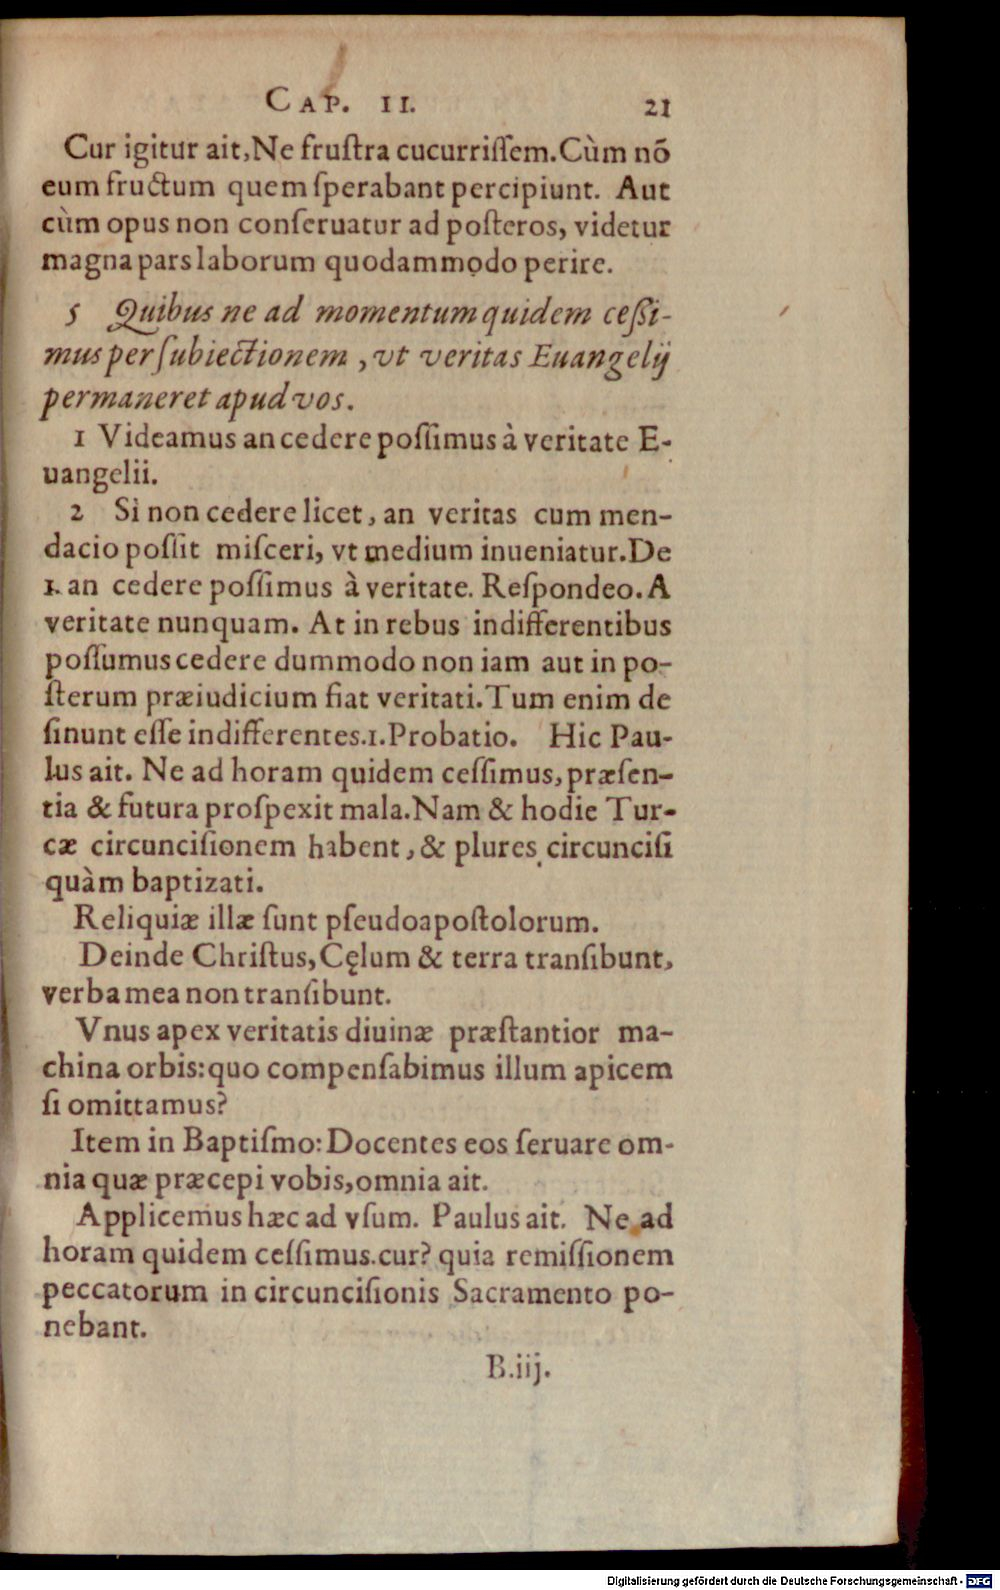 CAP. II. 21
Cur igitur ait,Ne fruſtra cucurriſſem.Cùm nõ
eum fructum quem ſperabant percipiunt. Aut
cùm opus non conſeruatur ad poſteros, videtur
magna pars laborum quodammodo perire.
5 Quibus ne ad momentum quidem ceßi-
mus per ſubiectionem, vt veritas Euangelij
permaneret apud vos.
1 Videamus an cedere poſſimus à veritate E-
uangelii.
2 Si non cedere licet, an veritas cum men-
dacio poſſit miſceri, vt medium inueniatur.De
1. an cedere poſſimus à veritate. Reſpondeo. A
veritate nunquam. At in rebus indifferentibus
poſſumus cedere dummodo non iam aut in po-
ſterum præiudicium fiat veritati.Tum enim de
ſinunt eſſe indifferentes.1.Probatio. Hic Pau-
lus ait. Ne ad horam quidem ceſſimus, præſen-
tia & futura proſpexit mala.Nam & hodie Tur-
cæ circunciſionem habent, & plures circunciſi
quàm baptizati.
Reliquiæ illæ ſunt pſeudoapoſtolorum.
Deinde Chriſtus, Cęlum & terra tranſibunt,
verba mea non tranſibunt.
Vnus apex veritatis diuinæ præſtantior ma-
china orbis:quo compenſabimus illum apicem
ſi omittamus?
Item in Baptiſmo: Docentes eos ſeruare om-
nia quæ præcepi vobis,omnia ait.
Applicemus hæc ad vſum. Paulus ait. Ne ad
horam quidem ceſſimus.cur? quia remiſſionem
peccatorum in circunciſionis Sacramento po-
nebant.
B.iij.
Digitalisierung gefördert durch die Deutsche Forschungsgemeinschaft - DFG